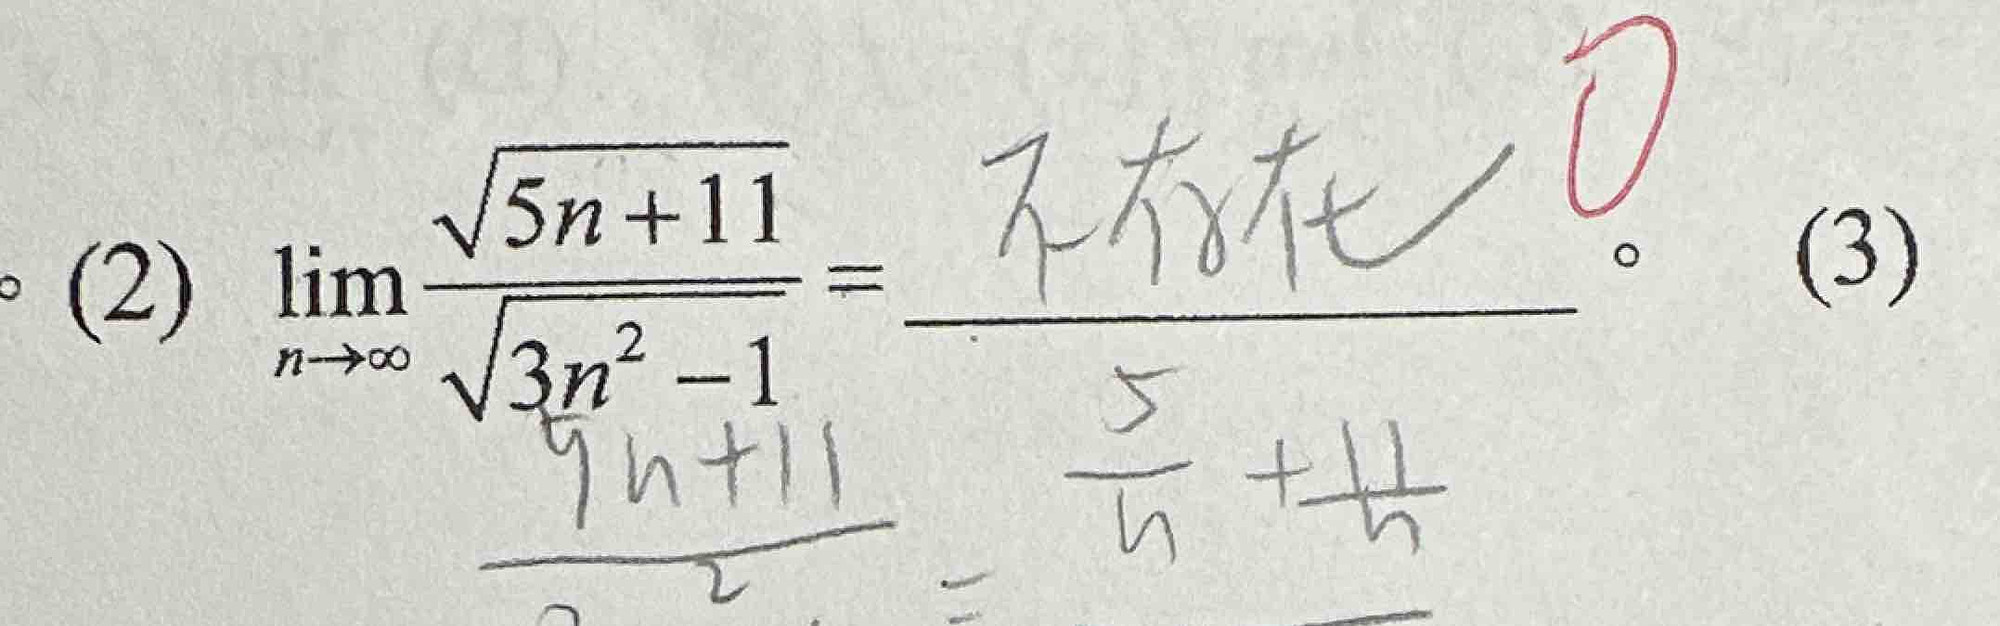 。(2) lim n→∞ √(5n+11) / √(3n² −1) = 不存在 。 0 (3)
5n+11 / 2 = 5/n + 11/n